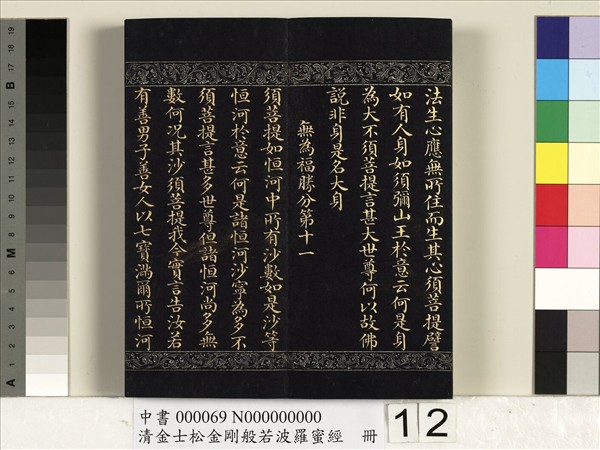 法生心應無所住而生其心須菩提譬
如有人身如須彌山王於意云何是身
為大不須菩提言甚大世尊何以故佛
說非身是名大身
無為福勝分第十一
須菩提如恒河中所有沙數如是沙等
恒河於意云何是諸恒河沙寧為多不
須菩提言甚多世尊但諸恒河尚多無
數何况其沙須菩提我今實言告汝若
有善男子善女人以七寶滿爾所恒河
中書 000069 N000000000
清金士松金剛般若波羅蜜經 冊
12
19
18
17
16
15
14
13
12
11
10
9
8
7
6
5
4
3
2
1
B
M
A